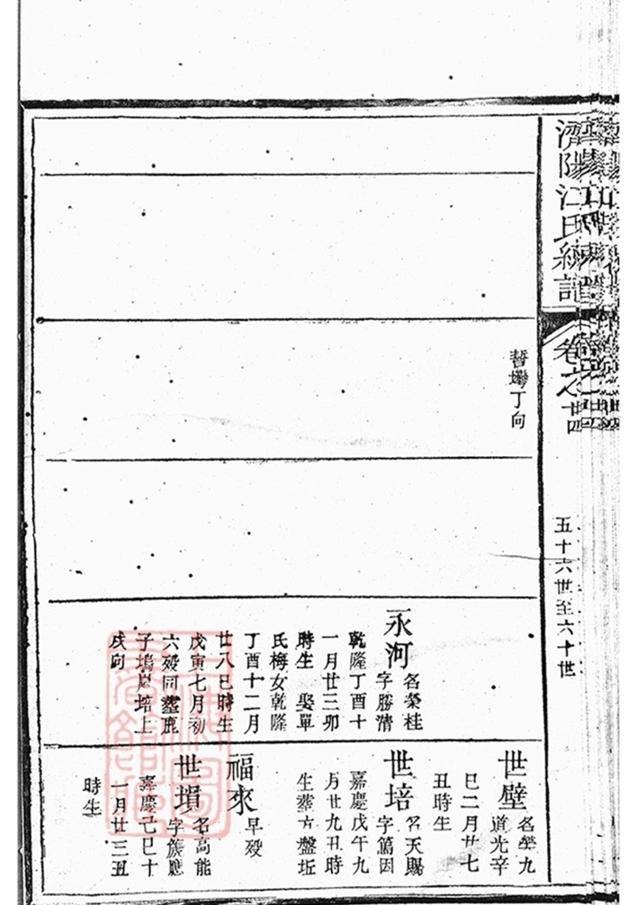 濟陽江氏統譜
卷之廿四
五十六世至六十世
丁向
永河
名榮桂
字勝清
乾隆丁酉十
一月廿三卯
時生 娶單
氏梅女乾隆
丁酉十二月
廿八巳時生
戊寅七月初
六歿同塟鹿
子塢
培上
戌向
世壁
名
九
道光辛
巳二月廿七
丑時生
世培
名天賜
字
因
嘉慶戊午九
月廿九丑時
生塟方盤坵
福來
早歿
世塤
名高能
字族應
嘉慶己巳十
一月廿三丑
時生